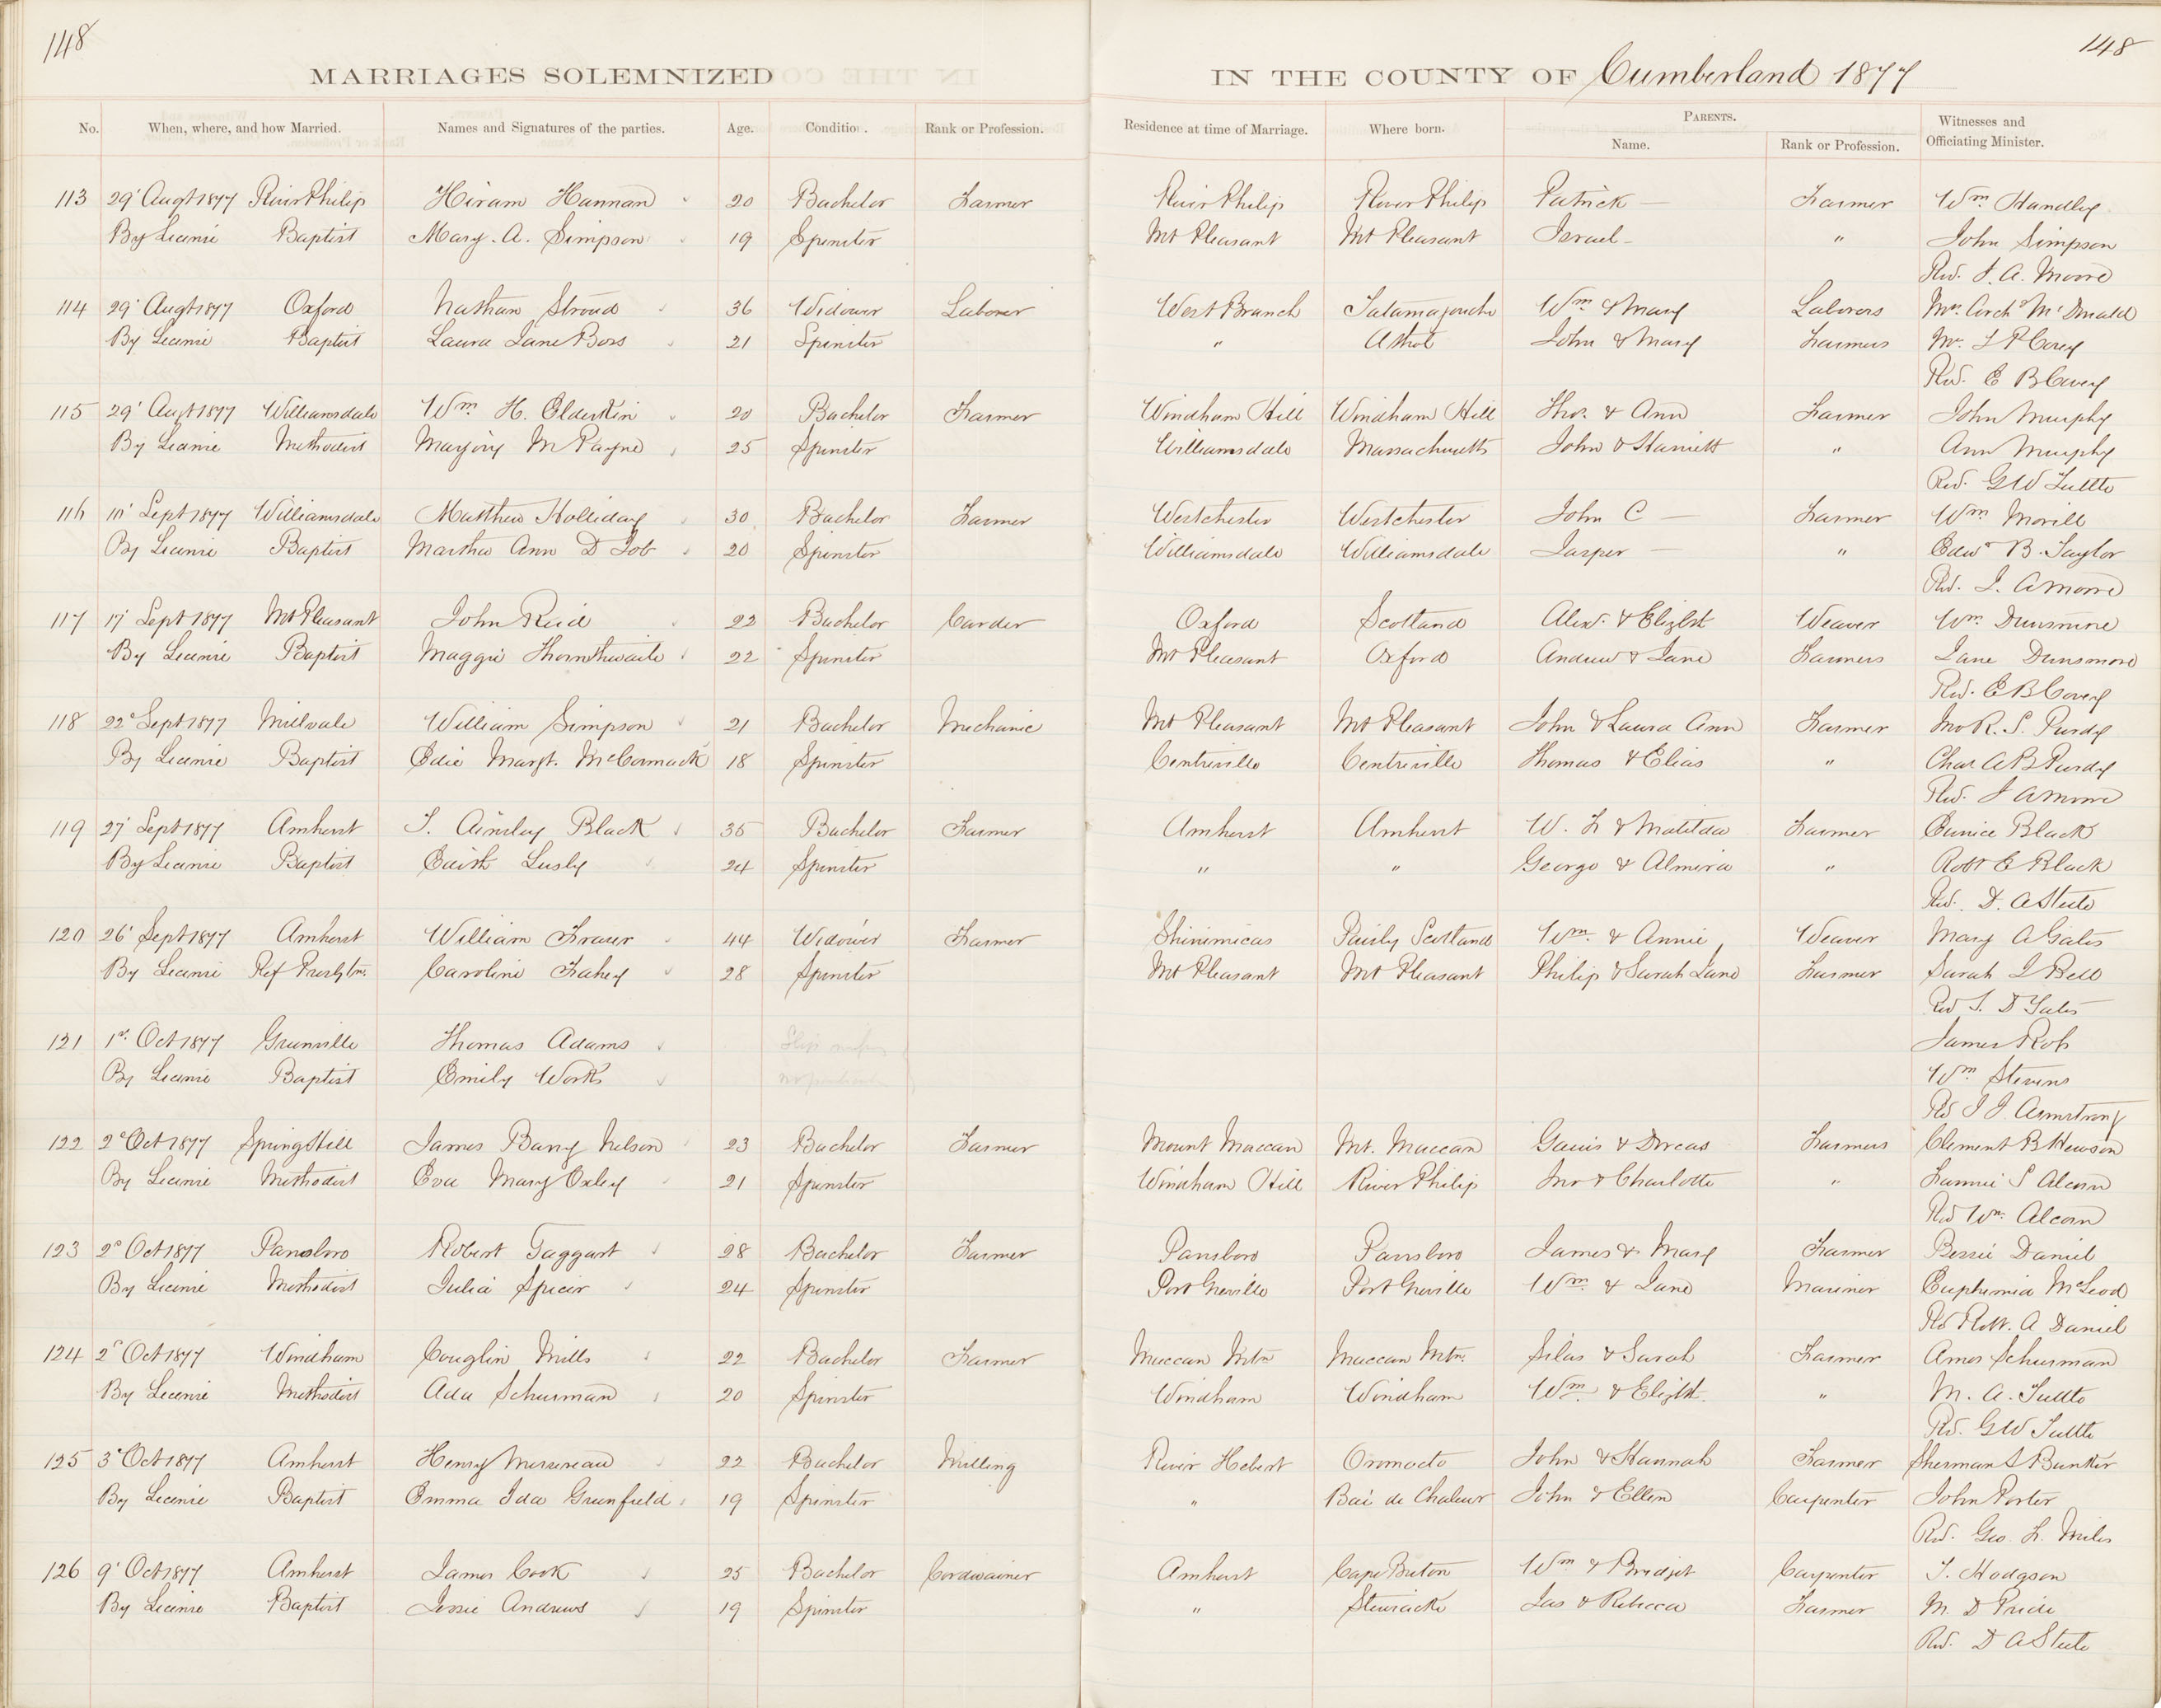 148
148
MARRIAGES SOLEMNIZED IN THE COUNTY OF Cumberland 1877
No. When, where, and how Married. Names and Signatures of the parties. Age. Condition. Rank or Profession. Residence at time of Marriage. Where born. PARENTS. Name. Rank or Profession. Witnesses and Officiating Minister.
113 29' Augt 1877 River Philip Hiram Hannan 20 Bachelor Farmer River Philip River Philip Patrick — Farmer Wm Handley
By License Baptist Mary. A. Simpson 19 Spinster Mt Pleasant Mt Pleasant Israel — " John Simpson
Rev. J. A. Moore
114 29' Augt 1877 Oxford Nathan Stroud 36 Widower Laborer West Branch Tatamagouche Wm & Mary Laborers Mrs. Archd McDonald
By License Baptist Laura Jane Boss 21 Spinster " Athol John & Mary Farmers
Rev. E B Corey
115 29' Augt 1877 Williamsdale Wm H. Elderkin 20 Bachelor Farmer Windham Hill Windham Hill Thos. & Ann Farmer John Murphy
By License Methodist Marjory M Payne 25 Spinster Williamsdale Massachusetts John & Harriett " Ann Murphy
Rev. G W Tuttle
116 Sept 1877 Williamsdale Matthew Holliday 30 Bachelor Farmer Westchester Westchester John C — Farmer Wm Morill
By License Baptist Martha Ann D Tob 20 Spinster Williamsdale Williamsdale Jasper — " Edwd B. Taylor
Rev. J. A Moore
117 17' Sept 1877 Mt Pleasant John Reid 22 Bachelor Carder Oxford Scotland Alexr. & Elizbt Weaver Wm. Dunsmore
By License Baptist Maggie Thornthwaite 22 Spinster Mt Pleasant Oxford Andrew & Jane Farmers Jane Dunsmore
Rev. E B Corey
118 22d Sept 1877 Millvale William Simpson 21 Bachelor Mechanic Mt Pleasant Mt Pleasant John & Laura Ann Farmer R. S. Purdy
By License Baptist Edie Margt. McCormack 18 Spinster Centreville Centreville Thomas & Elias " Chas A B Purdy
Rev. J A Moore
119 27' Sept 1877 Amherst T. Ainsley Black 35 Bachelor Farmer Amherst Amherst W. F & Matilda Farmer Eunice Black
By License Baptist Edith Lusby 24 Spinster " " George & Almira " Robt E Black
Rev. D. A Steele
120 26' Sept 1877 Amherst William Fraser 44 Widower Farmer Shinimicas Paisly Scotland Wm. & Annie Weaver Mary A Gates
By License Ref Presbytn. Caroline Fahey 28 Spinster Mt Pleasant Mt Pleasant Philip & Sarah Jane Farmer Sarah J Bell
Rev S. D Yates
121 1st. Oct 1877 Greenville Thomas Adams James Rob
By License Baptist Emily Work Wm Stevens
Rev J J Armstrong
122 2d Oct 1877 Spring Hill James Barry Nelson 23 Bachelor Farmer Mount Maccan Mt. Maccan Gaius & Dorcas Farmers Clement B Hewson
By License Methodist Eva Mary Oxley 21 Spinster Windham Hill River Philip Jno & Charlotte " Fannie S Alcorn
Rev Wm. Alcorn
123 2d Oct 1877 Parrsboro Robert Taggart 28 Bachelor Farmer Parrsboro Parrsboro James & Mary Farmer Bessie Daniel
By License Methodist Julia Spicer 24 Spinster Port Greville Port Greville Wm. & Jane Mariner Euphemia McLeod
Rev Robt. A Daniel
124 2d Oct 1877 Windham Couglin Mills 22 Bachelor Farmer Maccan Mtn Maccan Mtn. Silas & Sarah Farmer Amos Schurman
By License Methodist Ada Schurman 20 Spinster Windham Windham Wm & Elizbt. " M. A. Tuttle
Rev. G W Tuttle
125 3d Oct 1877 Amherst Henry Mersereau 22 Bachelor Milling River Hebert Oromocto John & Hannah Farmer Sherman S Bunker
By License Baptist Emma Ida Greenfield 19 Spinster " Bai de Chaleur John & Ellen Carpenter John Porter
Rev. Geo. F. Miles
126 9' Oct 1877 Amherst James Cook 25 Bachelor Cordwainer Amherst Cape Breton Wm & Bridget Carpenter T. Hodgson
By License Baptist Jessie Andrews 19 Spinster " Stewiacke Jas & Rebecca Farmer M. D Pride
Rev. D A Steele